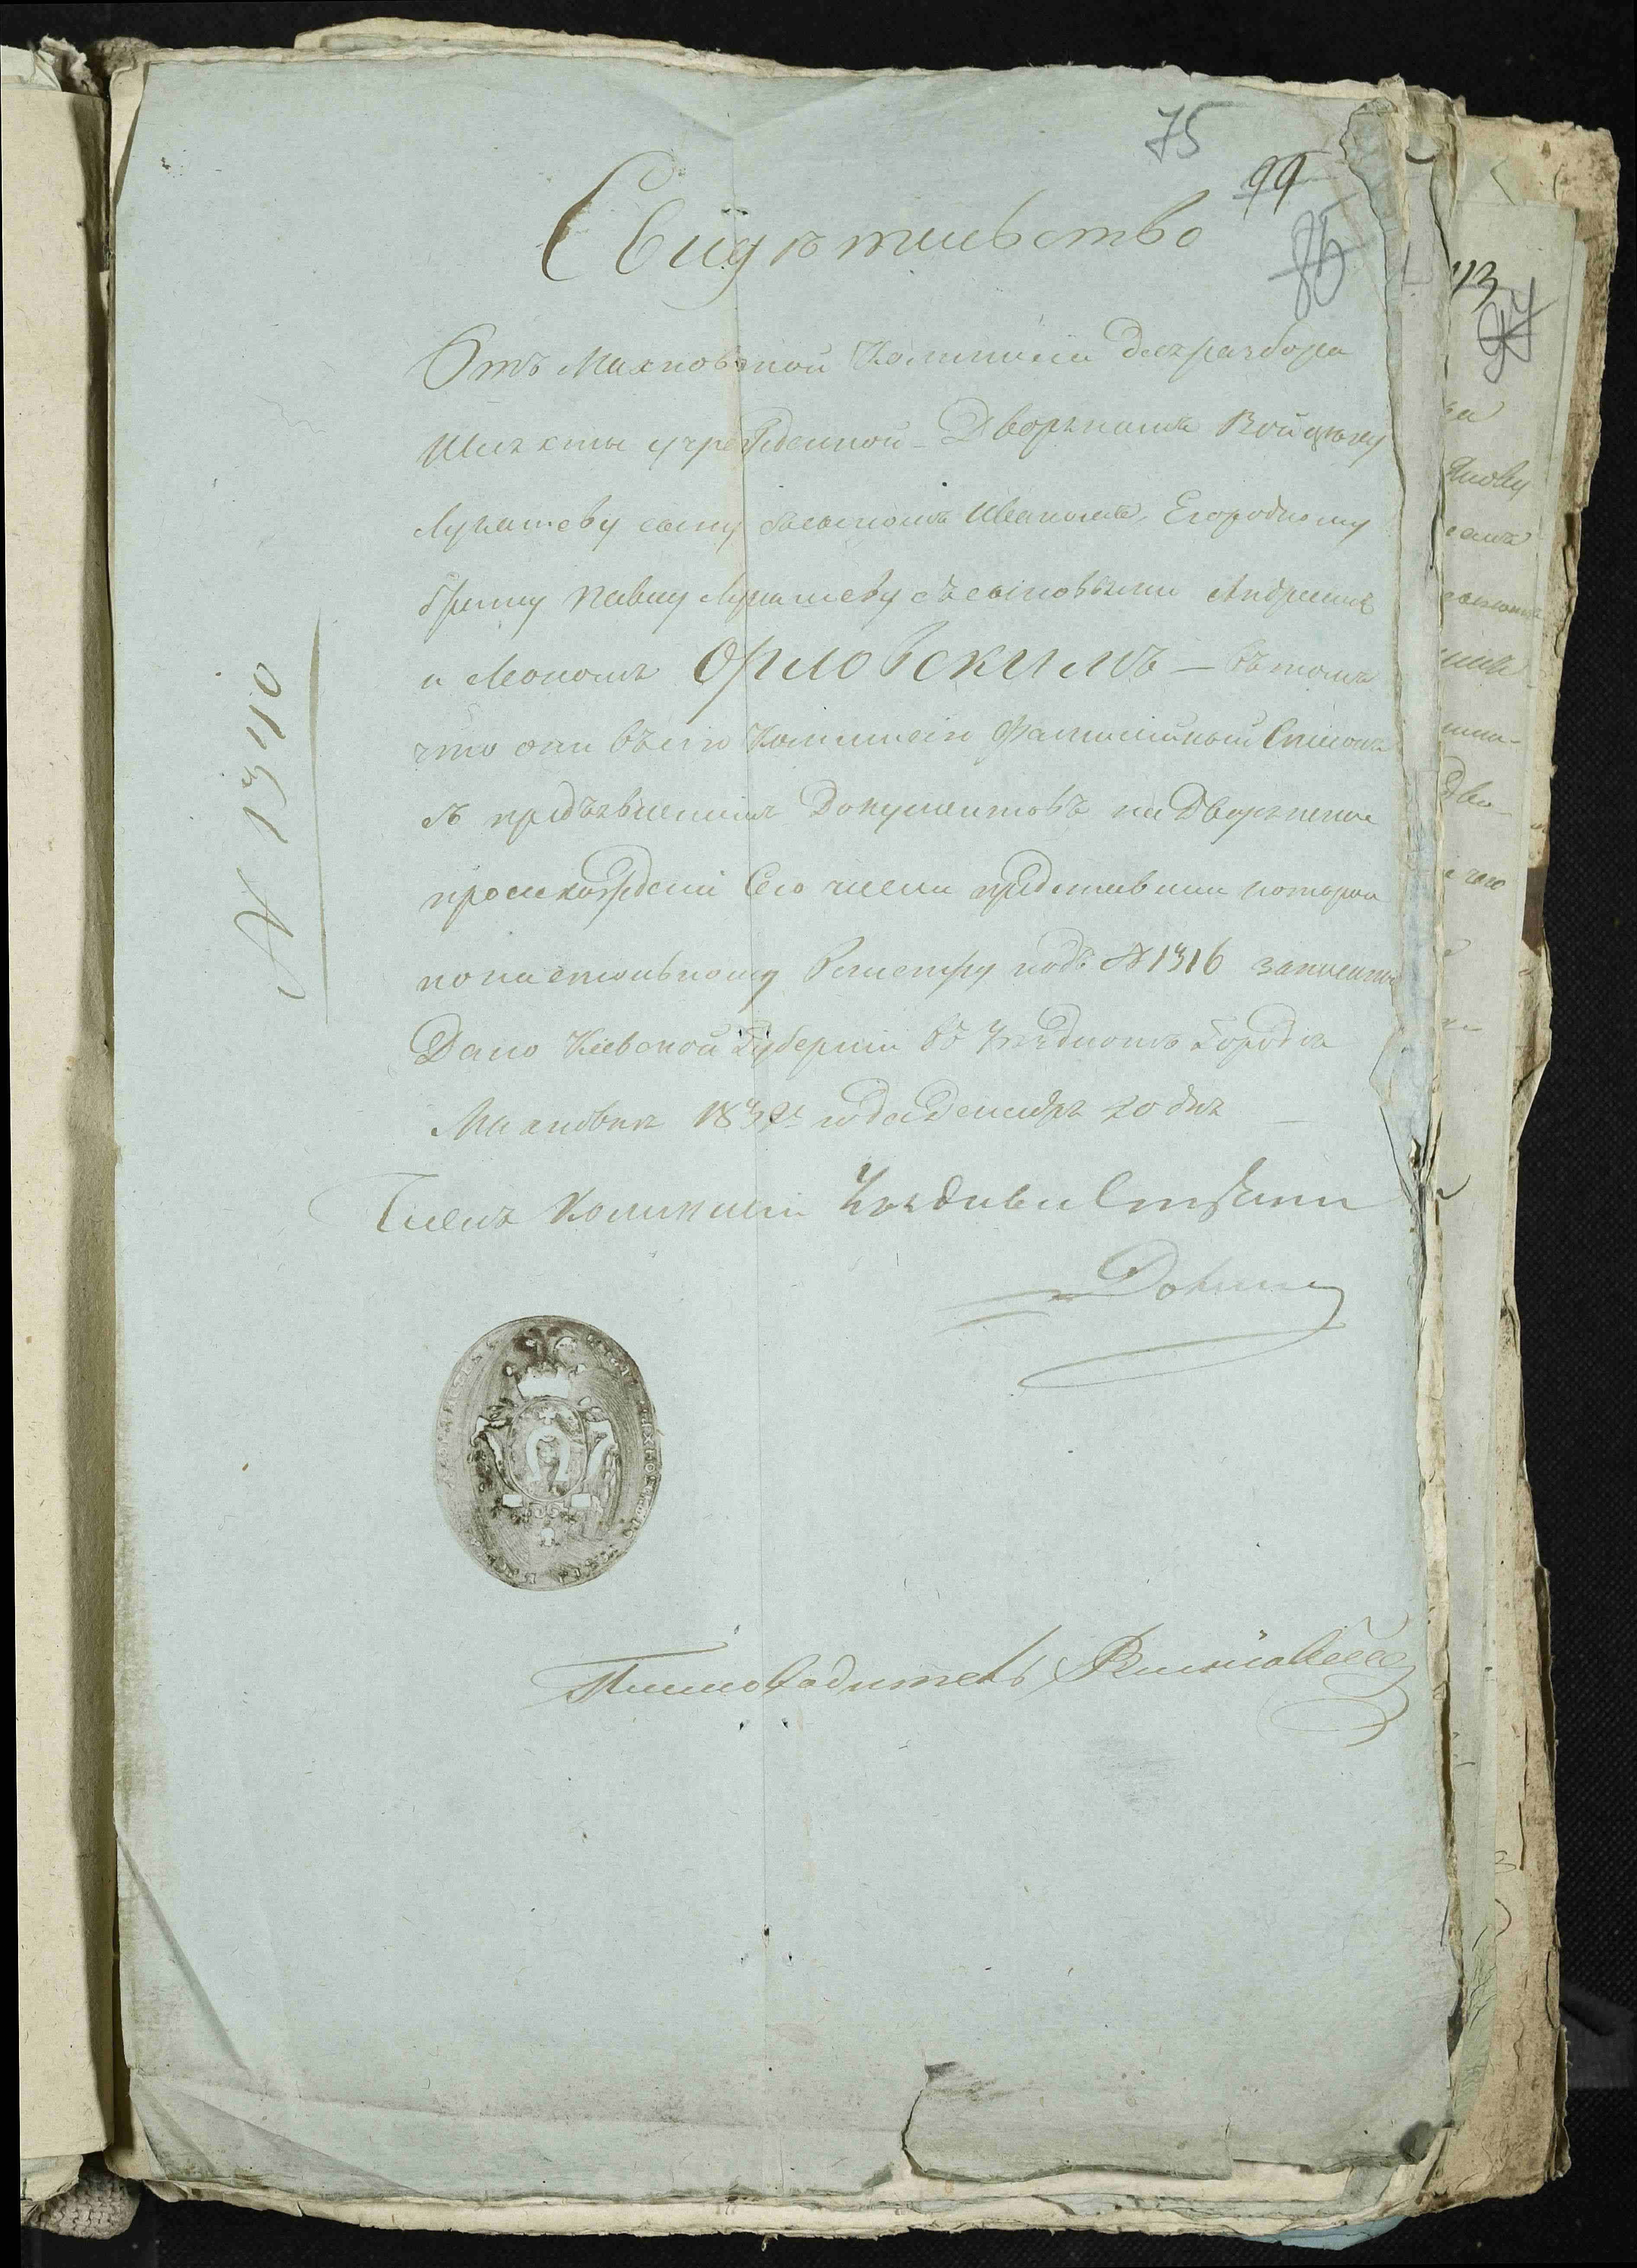 75
99
85
Свидѣтельство
Отъ Махновской Коммисіи для разбора
Шляхты учрежденной - Дворянамъ Войцеху
Лукашеву сыну съ сыномъ Иваномъ, Его родному
брату Павлу Лукашеву съ сыновьями Андреемъ
и Леономъ Орловскимъ — въ томъ
что они въ сію Коммисію Фамилійный Списокъ
съ предъявленіемъ Документовъ на Дворянское
происхожденіе Сего числа представили которои
по настольному Реестру подъ № 1316 записанъ
Дано Кіевской Губерніи въ Уѣздномъ Городѣ
Махновкѣ 183 года Декабря 20 дня
Членъ Коммисіи
Письмоводитель
№ 1340
113
94